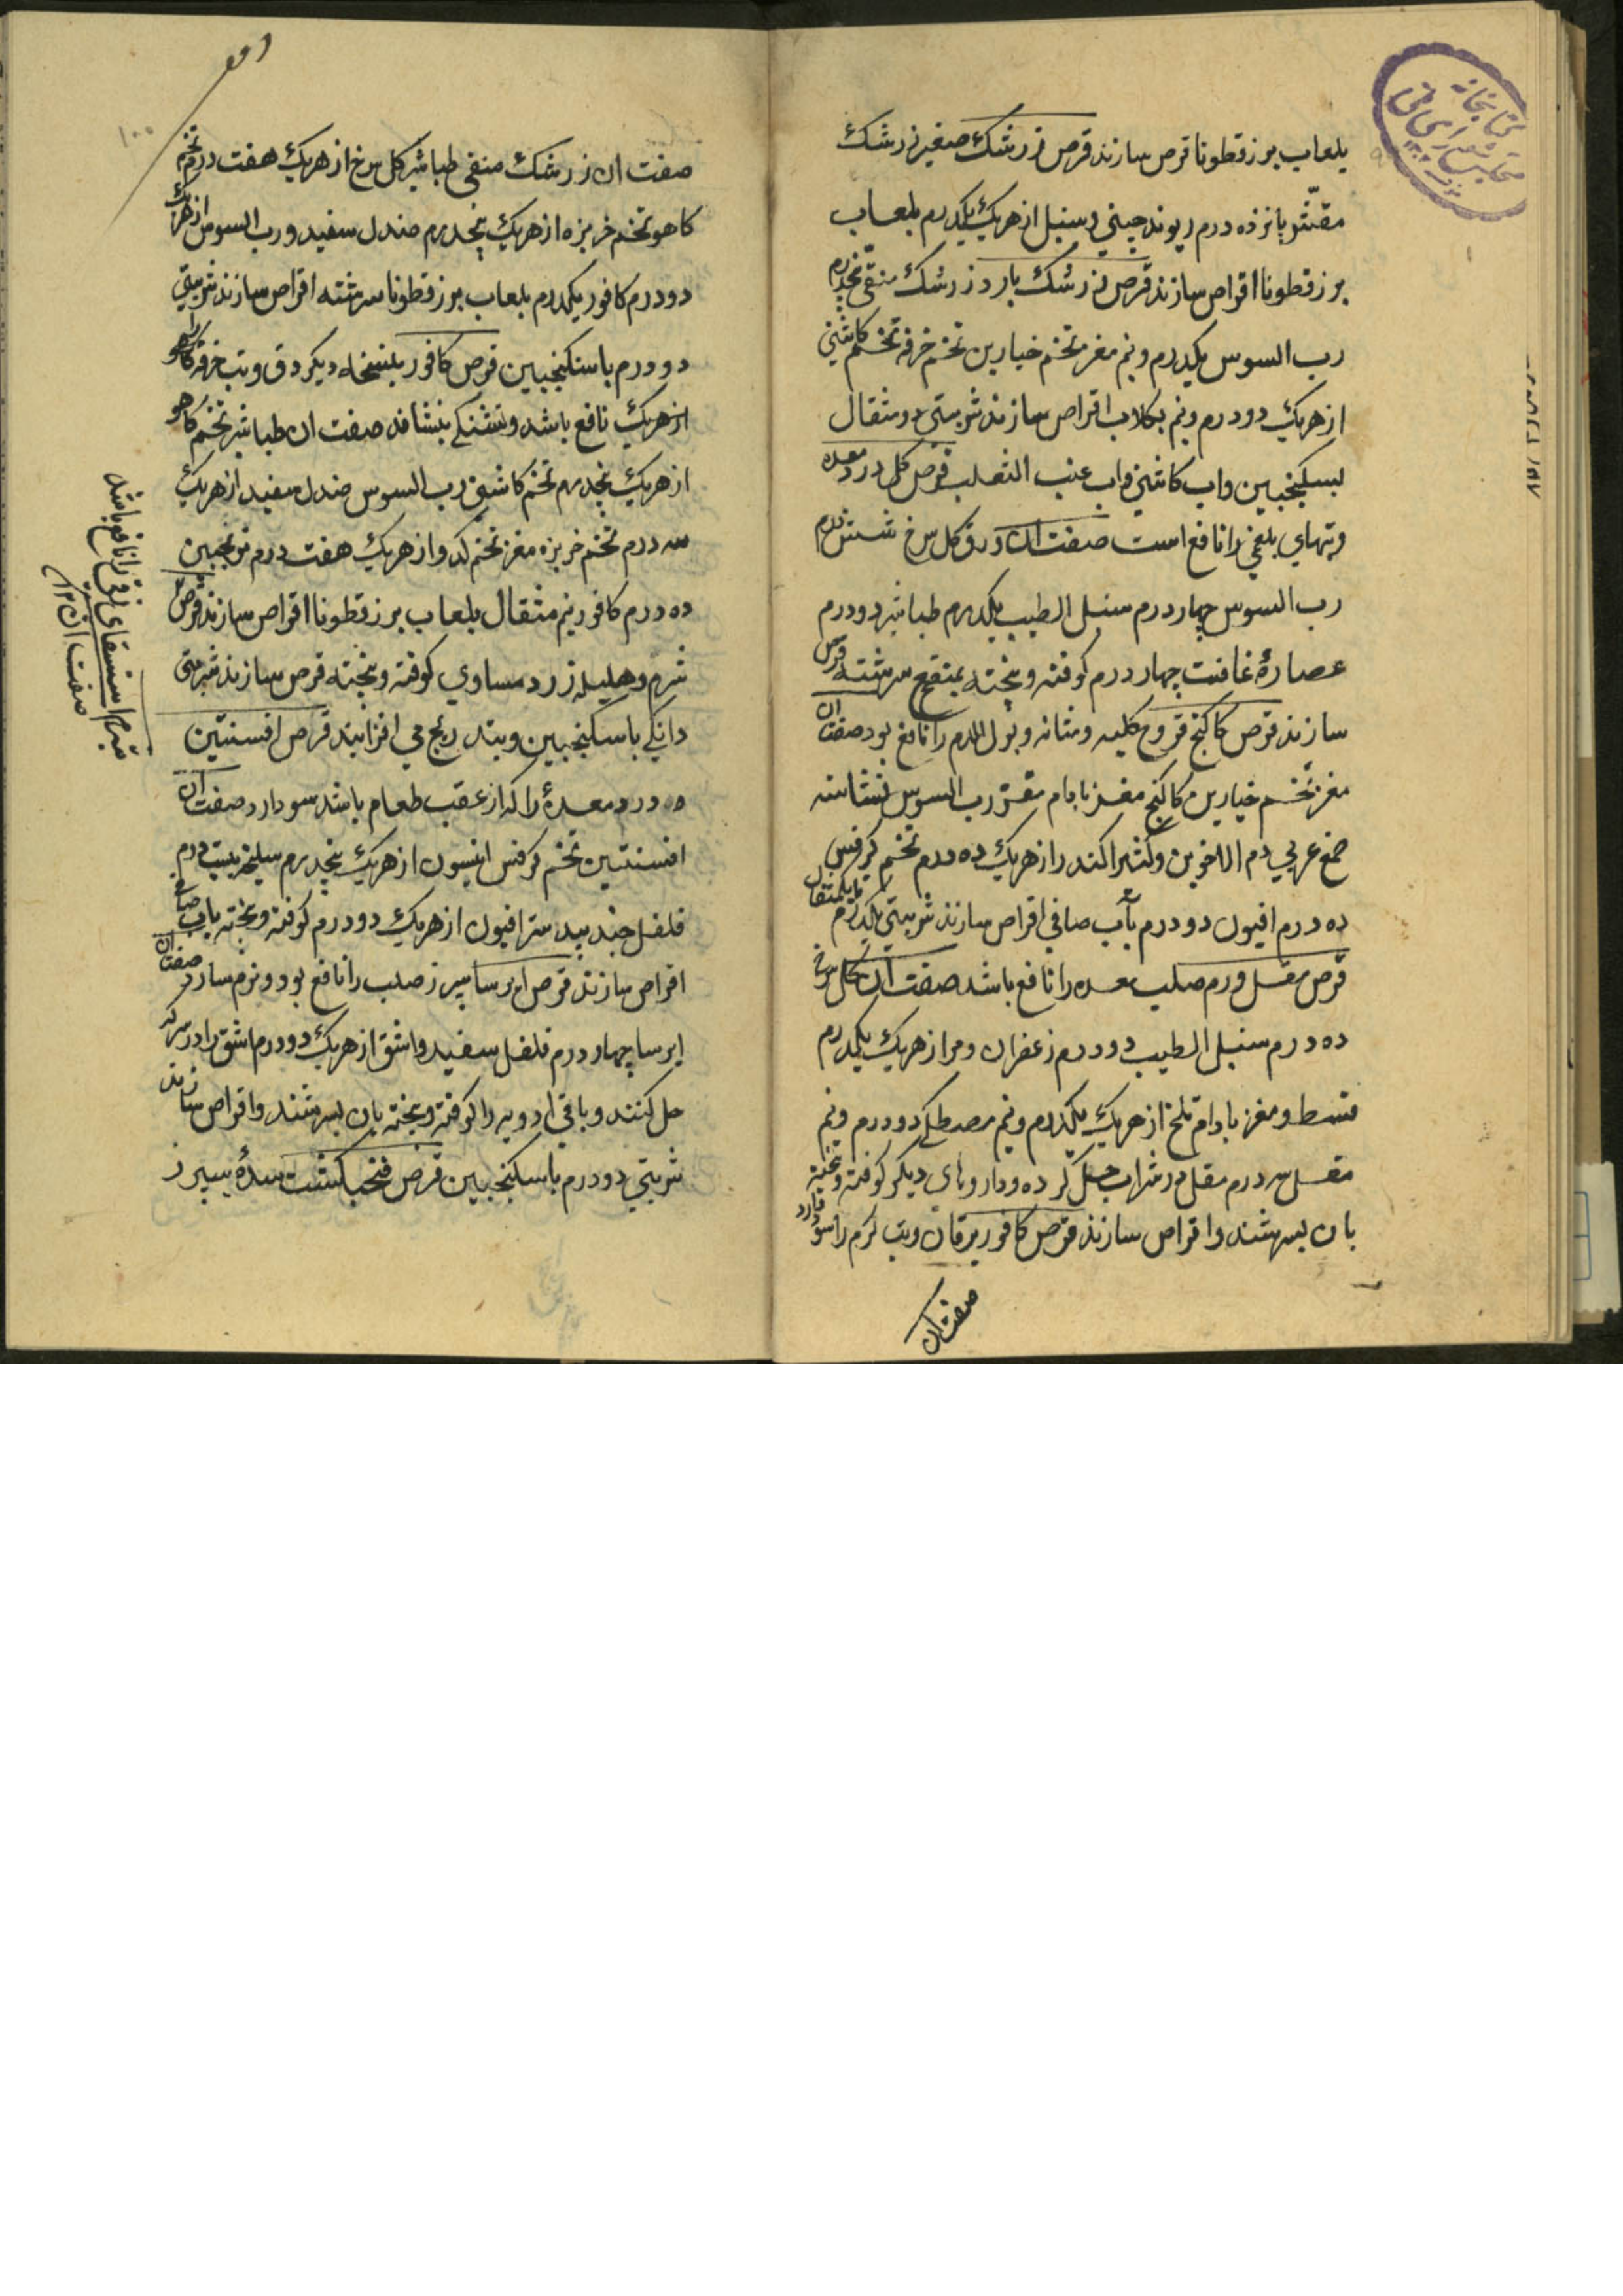 بلعاب بزرقطونا قرص سازند قرص زرشک صغیر زرشک
مقشر پانزده درم ریوند چینی و سنبل از هریک یکدرم بلعاب
بزرقطونا اقراص سازند قرص زرشک بارد زرشک منقی پنجدرم
رب السوس یکدرم ونیم مغز تخم خیارین تخم خرفه تخم کاشنی
از هریک دو درم ونیم بکلاب اقراص سازند شربتی دو مثقال
بسکنجبین واب کاشنی واب عنب الثعلب قرص کل درد معده
وتبهای بلغمی را نافع است صفت ان ورق کل سرخ شش درم
رب السوس چهار درم سنبل الطیب یکدرم طباشیر دو درم
عصارۀ غافت چهار درم کوفته وبیخته بمنقع سرشته قرص
سازند قرص کاکنج قروح کلیه ومثانه وبول الدم را نافع بود صفت ان
مغز تخم خیارین کاکنج مغز بادام مقشر رب السوس نشاسته
صمغ عربی دم الاخوین وکثیرا کندر از هریک ده درم تخم کرفس
ده درم افیون دو درم باب صافی اقراص سازند شربتی یکدرم تا یکمثقال
قرص مقل ورم صلب معده را نافع باشد صفت ان کل سرخ
ده درم سنبل الطیب دو درم زعفران ومر از هریک یکدرم
قسط ومغز بادام تلخ از هریک یکدرم ونیم مصطکی دو درم ونیم
مقل سه درم مقل در شراب حل کرده وداروهای دیکر کوفته وبیخته
بان بسرشند واقراص سازند قرص کافور یرقان وتب کرم را سود دارد
صفت ان
صفت ان زرشک منقی طباشیر کل سرخ از هریک هفت درم تخم
کاهو تخم خربزه از هریک پنجدرم صندل سفید ورب السوس از هریک
دو درم کافور یکدرم بلعاب بزرقطونا سرشته اقراص سازند شربتی
دو درم باسکنجبین قرص کافور بنسخه دیکر دق وتب خرقه را
از هریک نافع باشد وتشنکی بنشاند صفت ان طباشیر تخم کاهو
از هریک پنجدرم تخم کاشنی رب السوس صندل سفید از هریک
سه درم تخم خربزه مغز تخم کدو از هریک هفت درم ترنجبین
ده درم کافور نیم مثقال بلعاب بزرقطونا اقراص سازند قرص
شبرم وهلیله زرد مساوی کوفته وبیخته قرص سازند شربتی
دانکی باسکنجبین وبتدریج می افزایند قرص افسنتین
درد معدۀ را که از عقب طعام باشد سود دارد صفت ان
افسنتین تخم کرفس انیسون از هریک پنجدرم سلیخه بیست درم
فلفل جندبیدستر افیون از هریک دو درم کوفته وبیخته باب صافی
اقراص سازند قرص ایرسا سپرز صلب را نافع بود ونرم سازد صفت ان
ایرسا چهار درم فلفل سفید واشق از هریک دو درم اشق را در سرکه
حل کنند وباقی ادویه را کوفته وبیخته بان بسرشند واقراص سازند
شربتی دو درم باسکنجبین قرص فنجنکشت سدۀ سپرز
شبرم استسقای زقی را نافع باشد
صفت ان